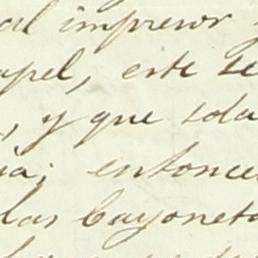 al impresor
apel, este se
, y que sola
ia; entonces
las bayoneta